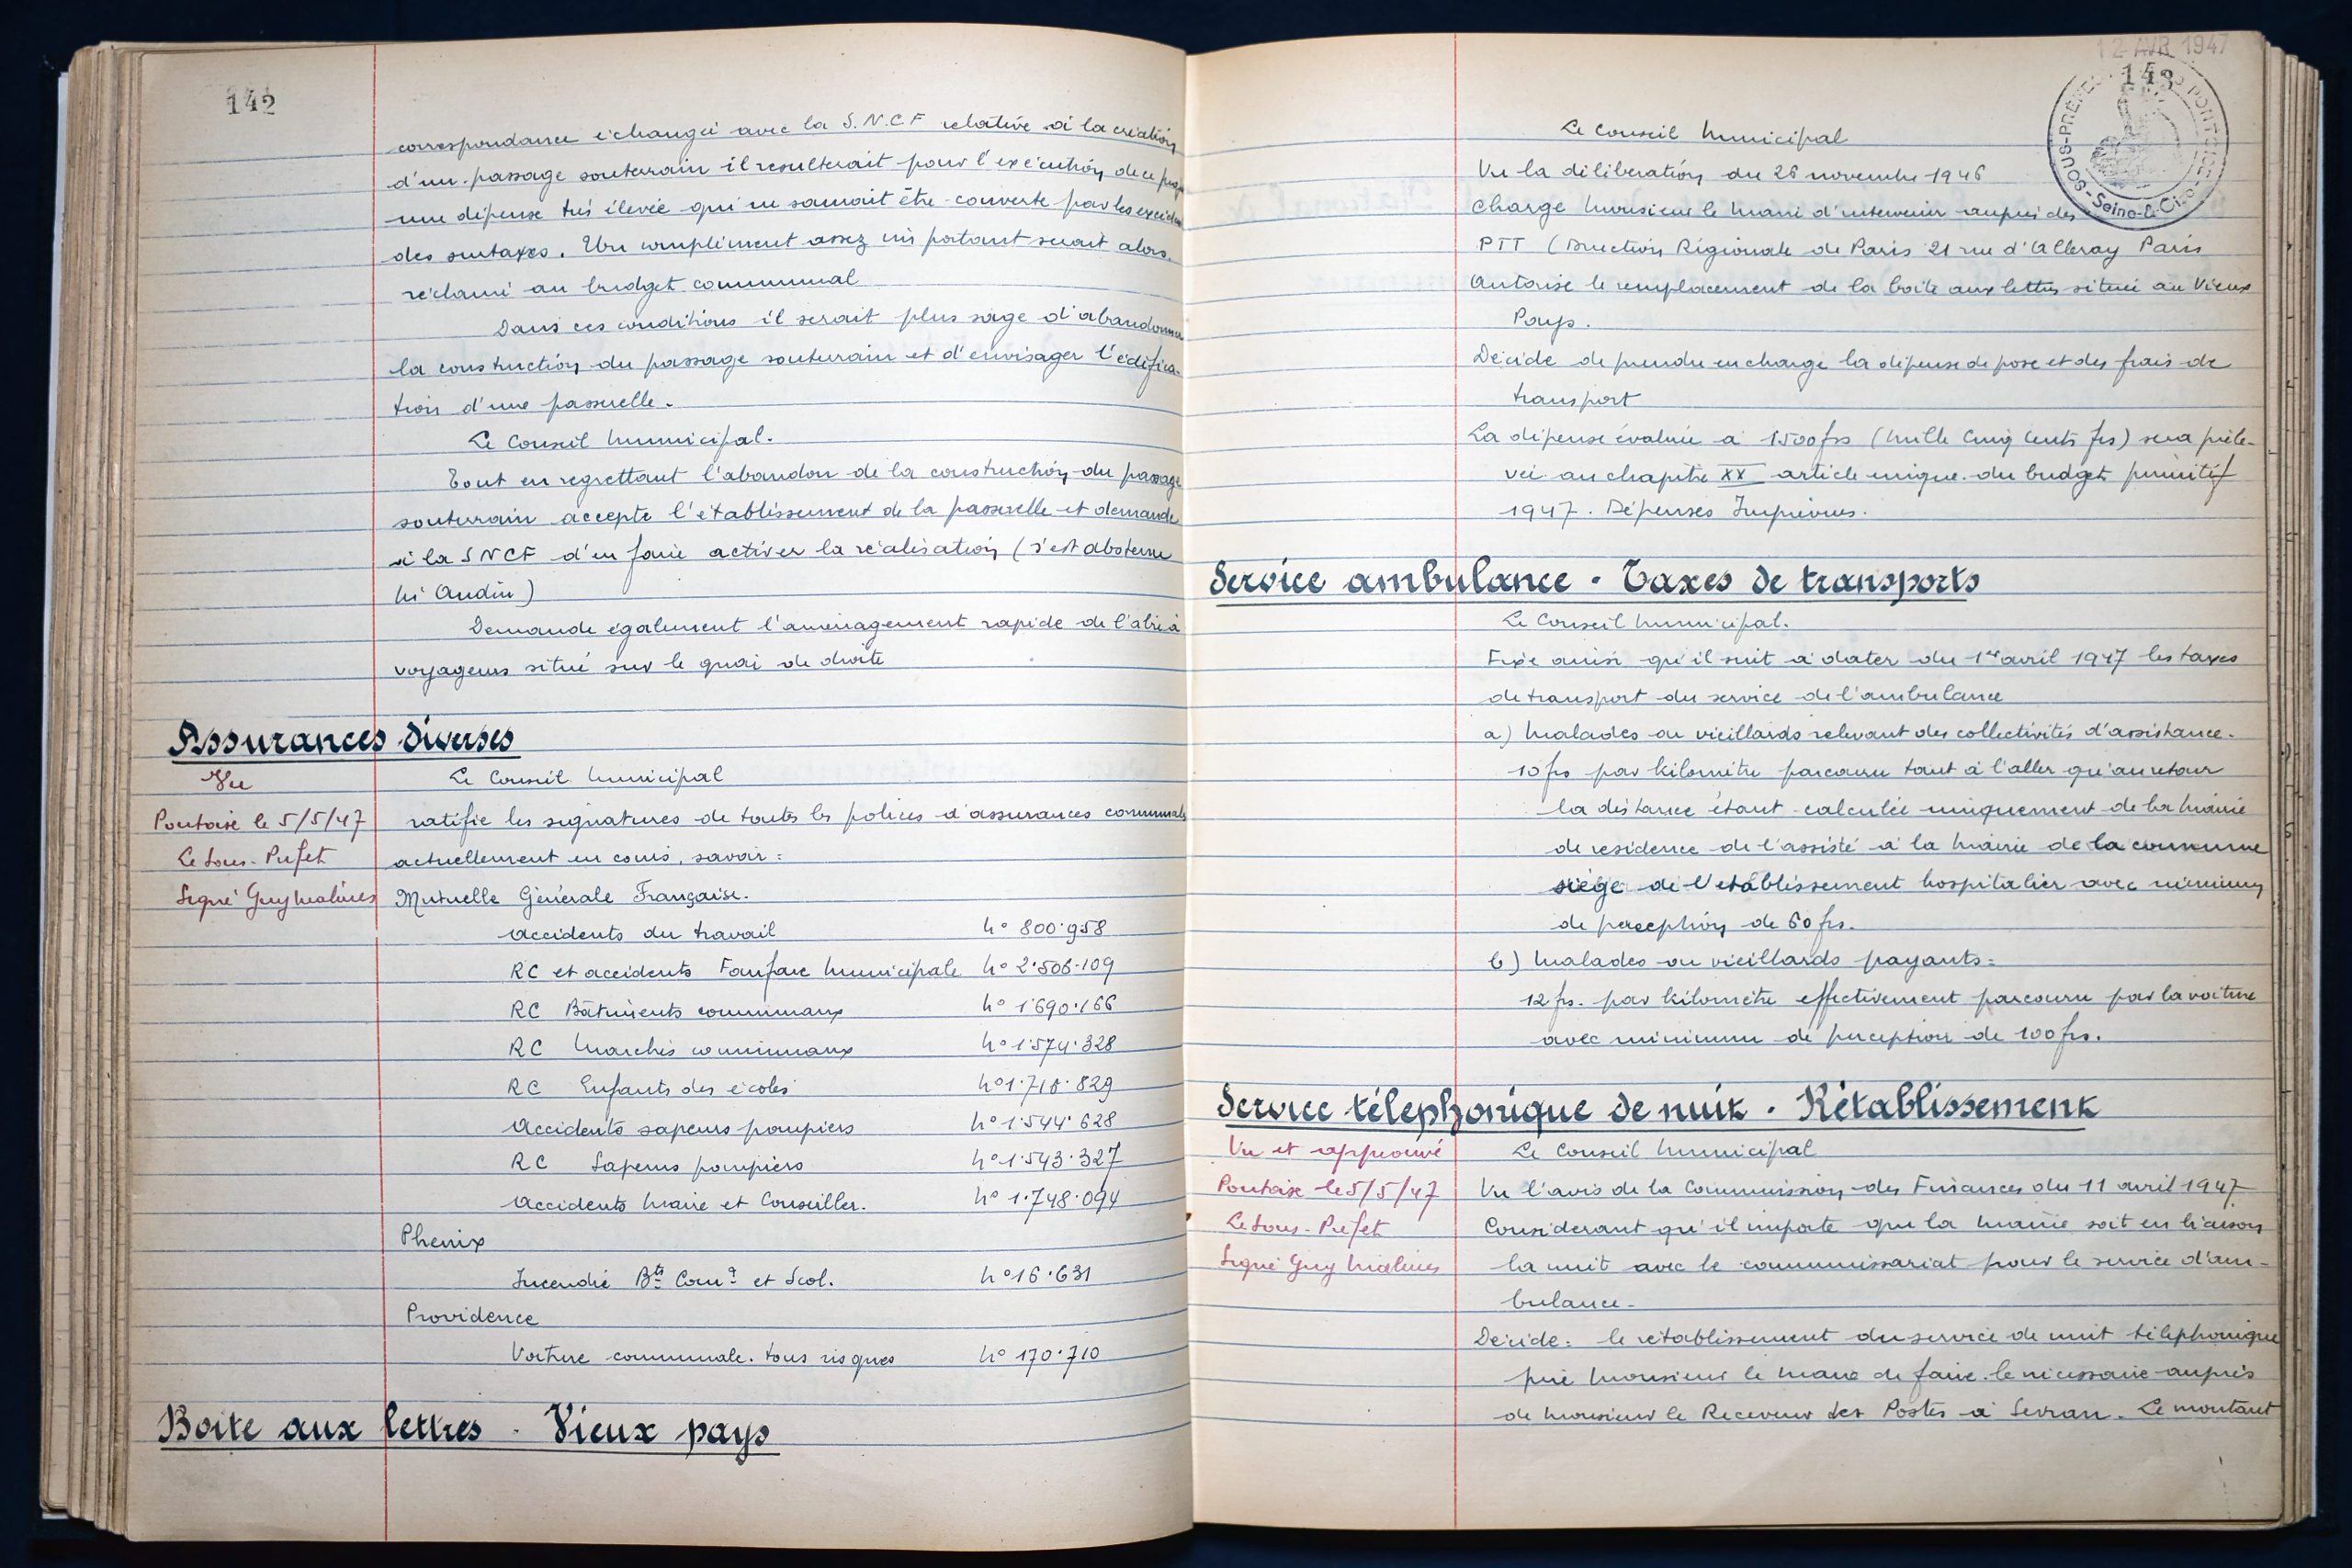 142
correspondance échangée avec la S.N.C.F relative à la création
d'un passage souterrain il resulterait pour l'exécution de ce
une dépense très élevée qui ne saurait être couverte par les
des surtaxes. Un complément assez important serait alors
réclamé au budget communal
Dans ces conditions il serait plus sage d'abandonner
la construction du passage souterrain et d'envisager l'édifica-
tion d'une passerelle.
Le Conseil Municipal.
Tout en regrettant l'abandon de la construction du passage
souterrain accepte l'établissement de la passerelle et demande
à la SNCF d'en faire activer la réalisation (s'est abstenu
Mr Audin)
Demande également l'aménagement rapide de l'abri à
voyageurs situé sur le quai de droite
Assurances diverses
Vu
Pontoise le 5/5/47
Le Sous-Préfet
Signé Guy Malines
Le Conseil Municipal
ratifie les signatures de toutes les polices d'assurances communales
actuellement en cours, savoir :
Mutuelle Générale Française.
Accidents du travail N° 800.958
RC et accidents Fanfare Municipale N° 2.506.109
RC Bâtiments communaux N° 1.690.166
RC Marchés communaux N° 1.574.328
RC Enfants des écoles N° 1.718.829
Accidents sapeurs pompiers N° 1.544.628
RC Sapeurs pompiers N° 1.543.327
Accidents Maire et Conseiller. N° 1.748.094
Phenix
Incendie Bts Comx et Scol. N° 16.631
Providence
Voiture communale. tous risques N° 170.710
Boite aux lettres . Vieux pays
12 AVR 1947
143
SOUS-PRÉFECTURE DE PONTOISE
Seine-&-Oise
Le Conseil Municipal
Vu la délibération du 26 novembre 1946
Charge Monsieur le Maire d'intervenir auprès des
PTT (Direction Régionale de Paris 21 rue d'Alleray Paris
Autorise le remplacement de la boîte aux lettres située au Vieux
Pays.
Décide de prendre en charge la dépense de pose et des frais de
transport
La dépense évaluée à 1500 frs (Mille Cinq Cents frs) sera préle-
vée au chapitre XX article unique du budget primitif
1947. Dépenses Imprévues.
Service ambulance . Taxes de transports
Le Conseil Municipal.
Fixe ainsi qu'il suit à dater du 1er avril 1947 les taxes
de transport du service de l'ambulance
a) Malades ou vieillards relevant des collectivités d'assistance.
10 frs par kilomètre parcouru tant à l'aller qu'au retour
la distance étant calculée uniquement de la Mairie
de residence de l'assisté à la Mairie de la commune
siège de l'établissement hospitalier avec minimum
de perception de 60 frs.
b) Malades ou vieillards payants:
12 frs. par kilomètre effectivement parcouru par la voiture
avec minimum de perception de 100 frs.
Service télephonique de nuit . Rétablissement
Vu et approuvé
Pontoise le 5/5/47
Le Sous-Préfet
Signé Guy Malines
Le Conseil Municipal
Vu l'avis de la Commission des Finances du 11 avril 1947
Considérant qu'il importe que la Mairie soit en liaison
la nuit avec le commissariat pour le service d'am-
bulance.
Décide : le rétablissement du service de nuit téléphonique
prie Monsieur le Maire de faire le nécessaire auprès
de Monsieur le Receveur des Postes à Sevran. Le montant